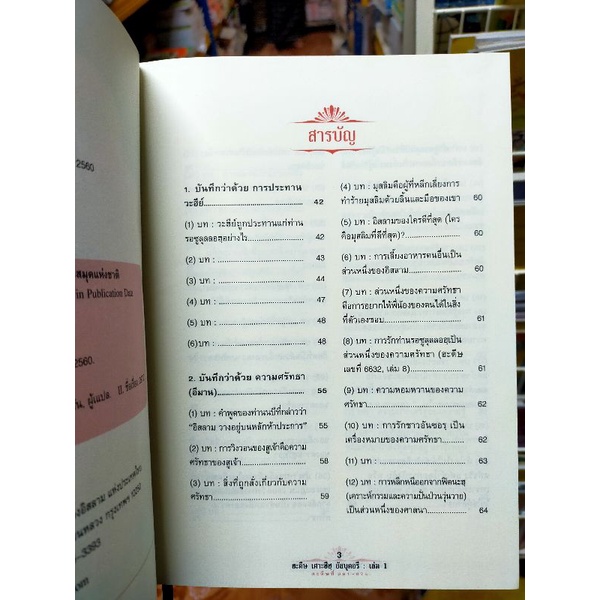 2560
สมุดแห่งชาติ
in Publication Data
2560.
น, ผู้แปล. II. ชื่อเรื่อง.
องอิสลาม แห่งประเทศไทย
กรุงเทพฯ 10250
-3393
om
สารบัญ
1. บันทึกว่าด้วย การประทาน
วะฮีย์ 42
(1) บท : วะฮีย์ถูกประทานแก่ท่าน
รอซูลุลลอฮฺอย่างไร 42
(2) บท : 43
(3) บท : 44
(4) บท : 47
(5) บท : 48
(6)บท : 48
2. บันทึกว่าด้วย ความศรัทธา
(อีมาน) 55
(1) บท : คำพูดของท่านนบีที่กล่าวว่า
"อิสลาม วางอยู่บนหลักห้าประการ" 55
(2) บท : การวิงวอนของสูเจ้าคือความ
ศรัทธาของสูเจ้า 58
(3) บท : สิ่งที่ถูกสั่งเกี่ยวกับความ
ศรัทธา 59
(4) บท : มุสลิมคือผู้ที่หลีกเลี่ยงการ
ทำร้ายมุสลิมด้วยลิ้นและมือของเขา 60
(5) บท : อิสลามของใครดีที่สุด (ใคร
คือมุสลิมที่ดีที่สุด)? 60
(6) บท : การเลี้ยงอาหารคนอื่นเป็น
ส่วนหนึ่งของอิสลาม 60
(7) บท : ส่วนหนึ่งของความศรัทธา
คือการอยากให้พี่น้องของตนได้ในสิ่ง
ที่ตัวเองชอบ 61
(8) บท : การรักท่านรอซูลุลลอฮฺเป็น
ส่วนหนึ่งของความศรัทธา (ฮะดีษ
เลขที่ 6632, เล่ม 8) 61
(9) บท : ความหอมหวานของความ
ศรัทธา 62
(10) บท : การรักชาวอันซอรฺ เป็น
เครื่องหมายของความศรัทธา 62
(11) บท : 63
(12) บท : การหลีกหนีออกจากฟิตนะฮฺ
(เคราะห์กรรมและความปั่นป่วนวุ่นวาย)
เป็นส่วนหนึ่งของศาสนา 64
3
ฮะดีษ เศาะฮีฮฺ อัลบุคอรี : เล่ม 1